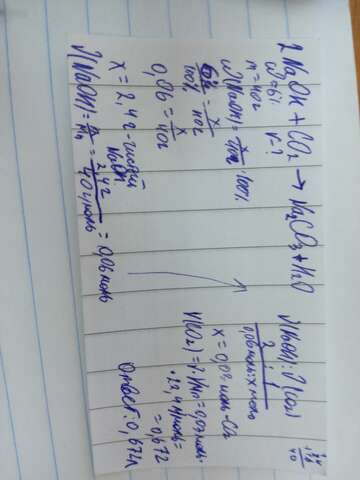 2NaOH + CO2 → Na2CO3 + H2O
ω = 6%
m = 40г
V - ?
ω(NaOH) = x/ · 100%
6%/100% = x/40г
0,06 = x/40г
x = 2,4г - чистый
NaOH
η(NaOH) = m/M = 2,4г/40г/моль = 0,06 моль
η(NaOH) : η(CO2)
2 : 1
0,06 моль : x моль
x = 0,03 моль - CO2
V(CO2) = η · Vm = 0,03 моль ·
· 22,4 л/моль =
= 0,672
Ответ: 0,672л